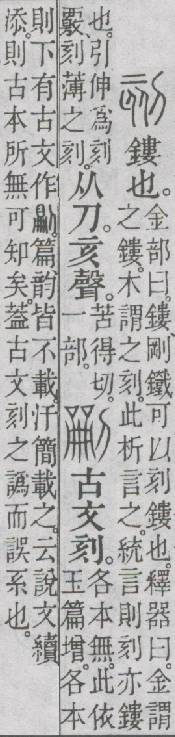 鏤也。
金部曰。鏤、剛鐵可以刻鏤也。釋器曰。金謂
之鏤。木謂之刻。此析言之。統言則刻亦鏤
也。引伸爲刻
覈刻薄之刻。
从刀。亥聲。
苦得切。
一部。
古文刻。
各本無。此依
玉篇增。各本
則下有古文作。篇韵皆不載。汗簡載之。云說文續
添。則古本所無可知矣。葢古文刻之譌而誤系也。